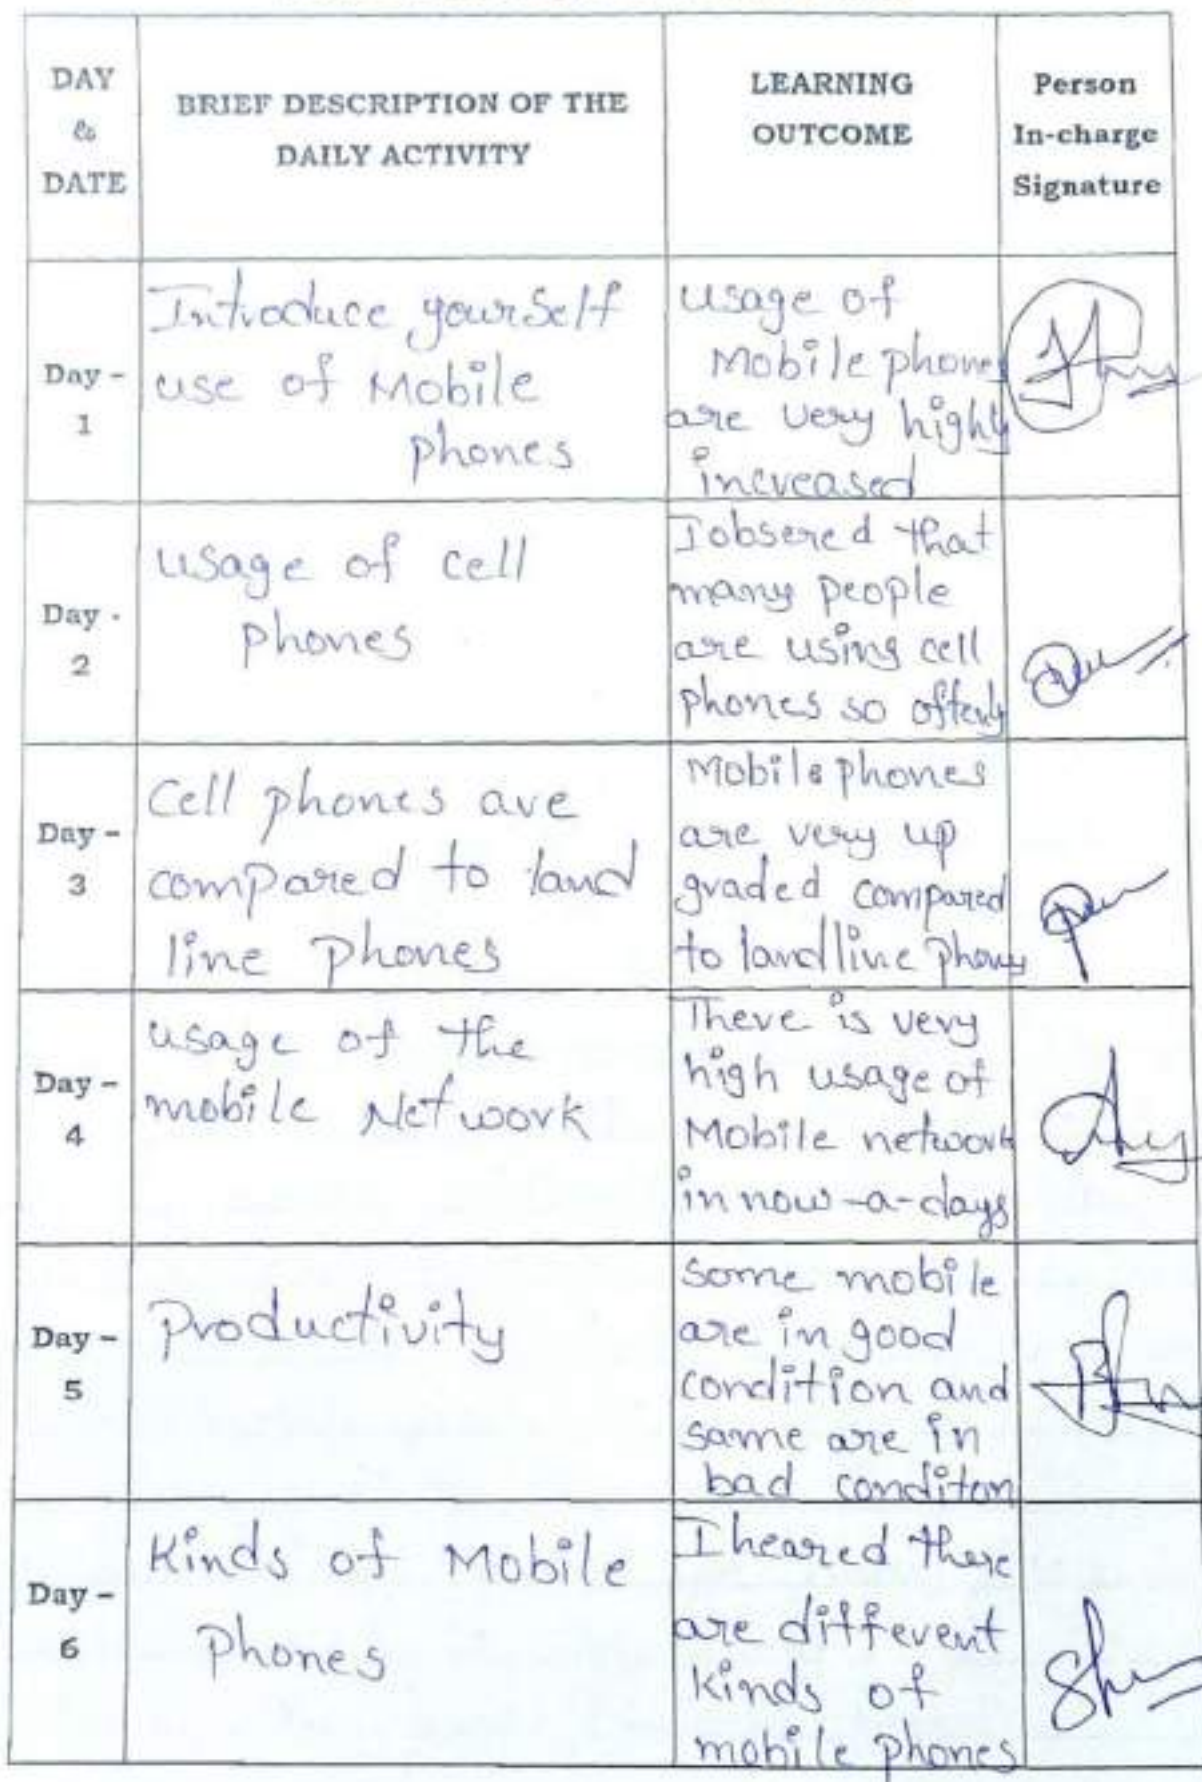 DAY
&
DATE
BRIEF DESCRIPTION OF THE
DAILY ACTIVITY
LEARNING
OUTCOME
Person
In-charge
Signature
Day -
1
Introduce yourself
use of Mobile
phones
usage of
Mobile phones
are very highly
increased
Day -
2
usage of cell
phones
I obsered that
many people
are using cell
phones so oftenly
Day -
3
Cell phones are
compared to land
line phones
Mobile phones
are very up
graded compared
to landline phones
Day -
4
usage of the
mobile Network
There is very
high usage of
Mobile network
in now-a-days
Day -
5
Productivity
some mobile
are in good
condition and
same are in
bad conditon
Day -
6
Kinds of Mobile
Phones
I heared there
are different
kinds of
mobile phones